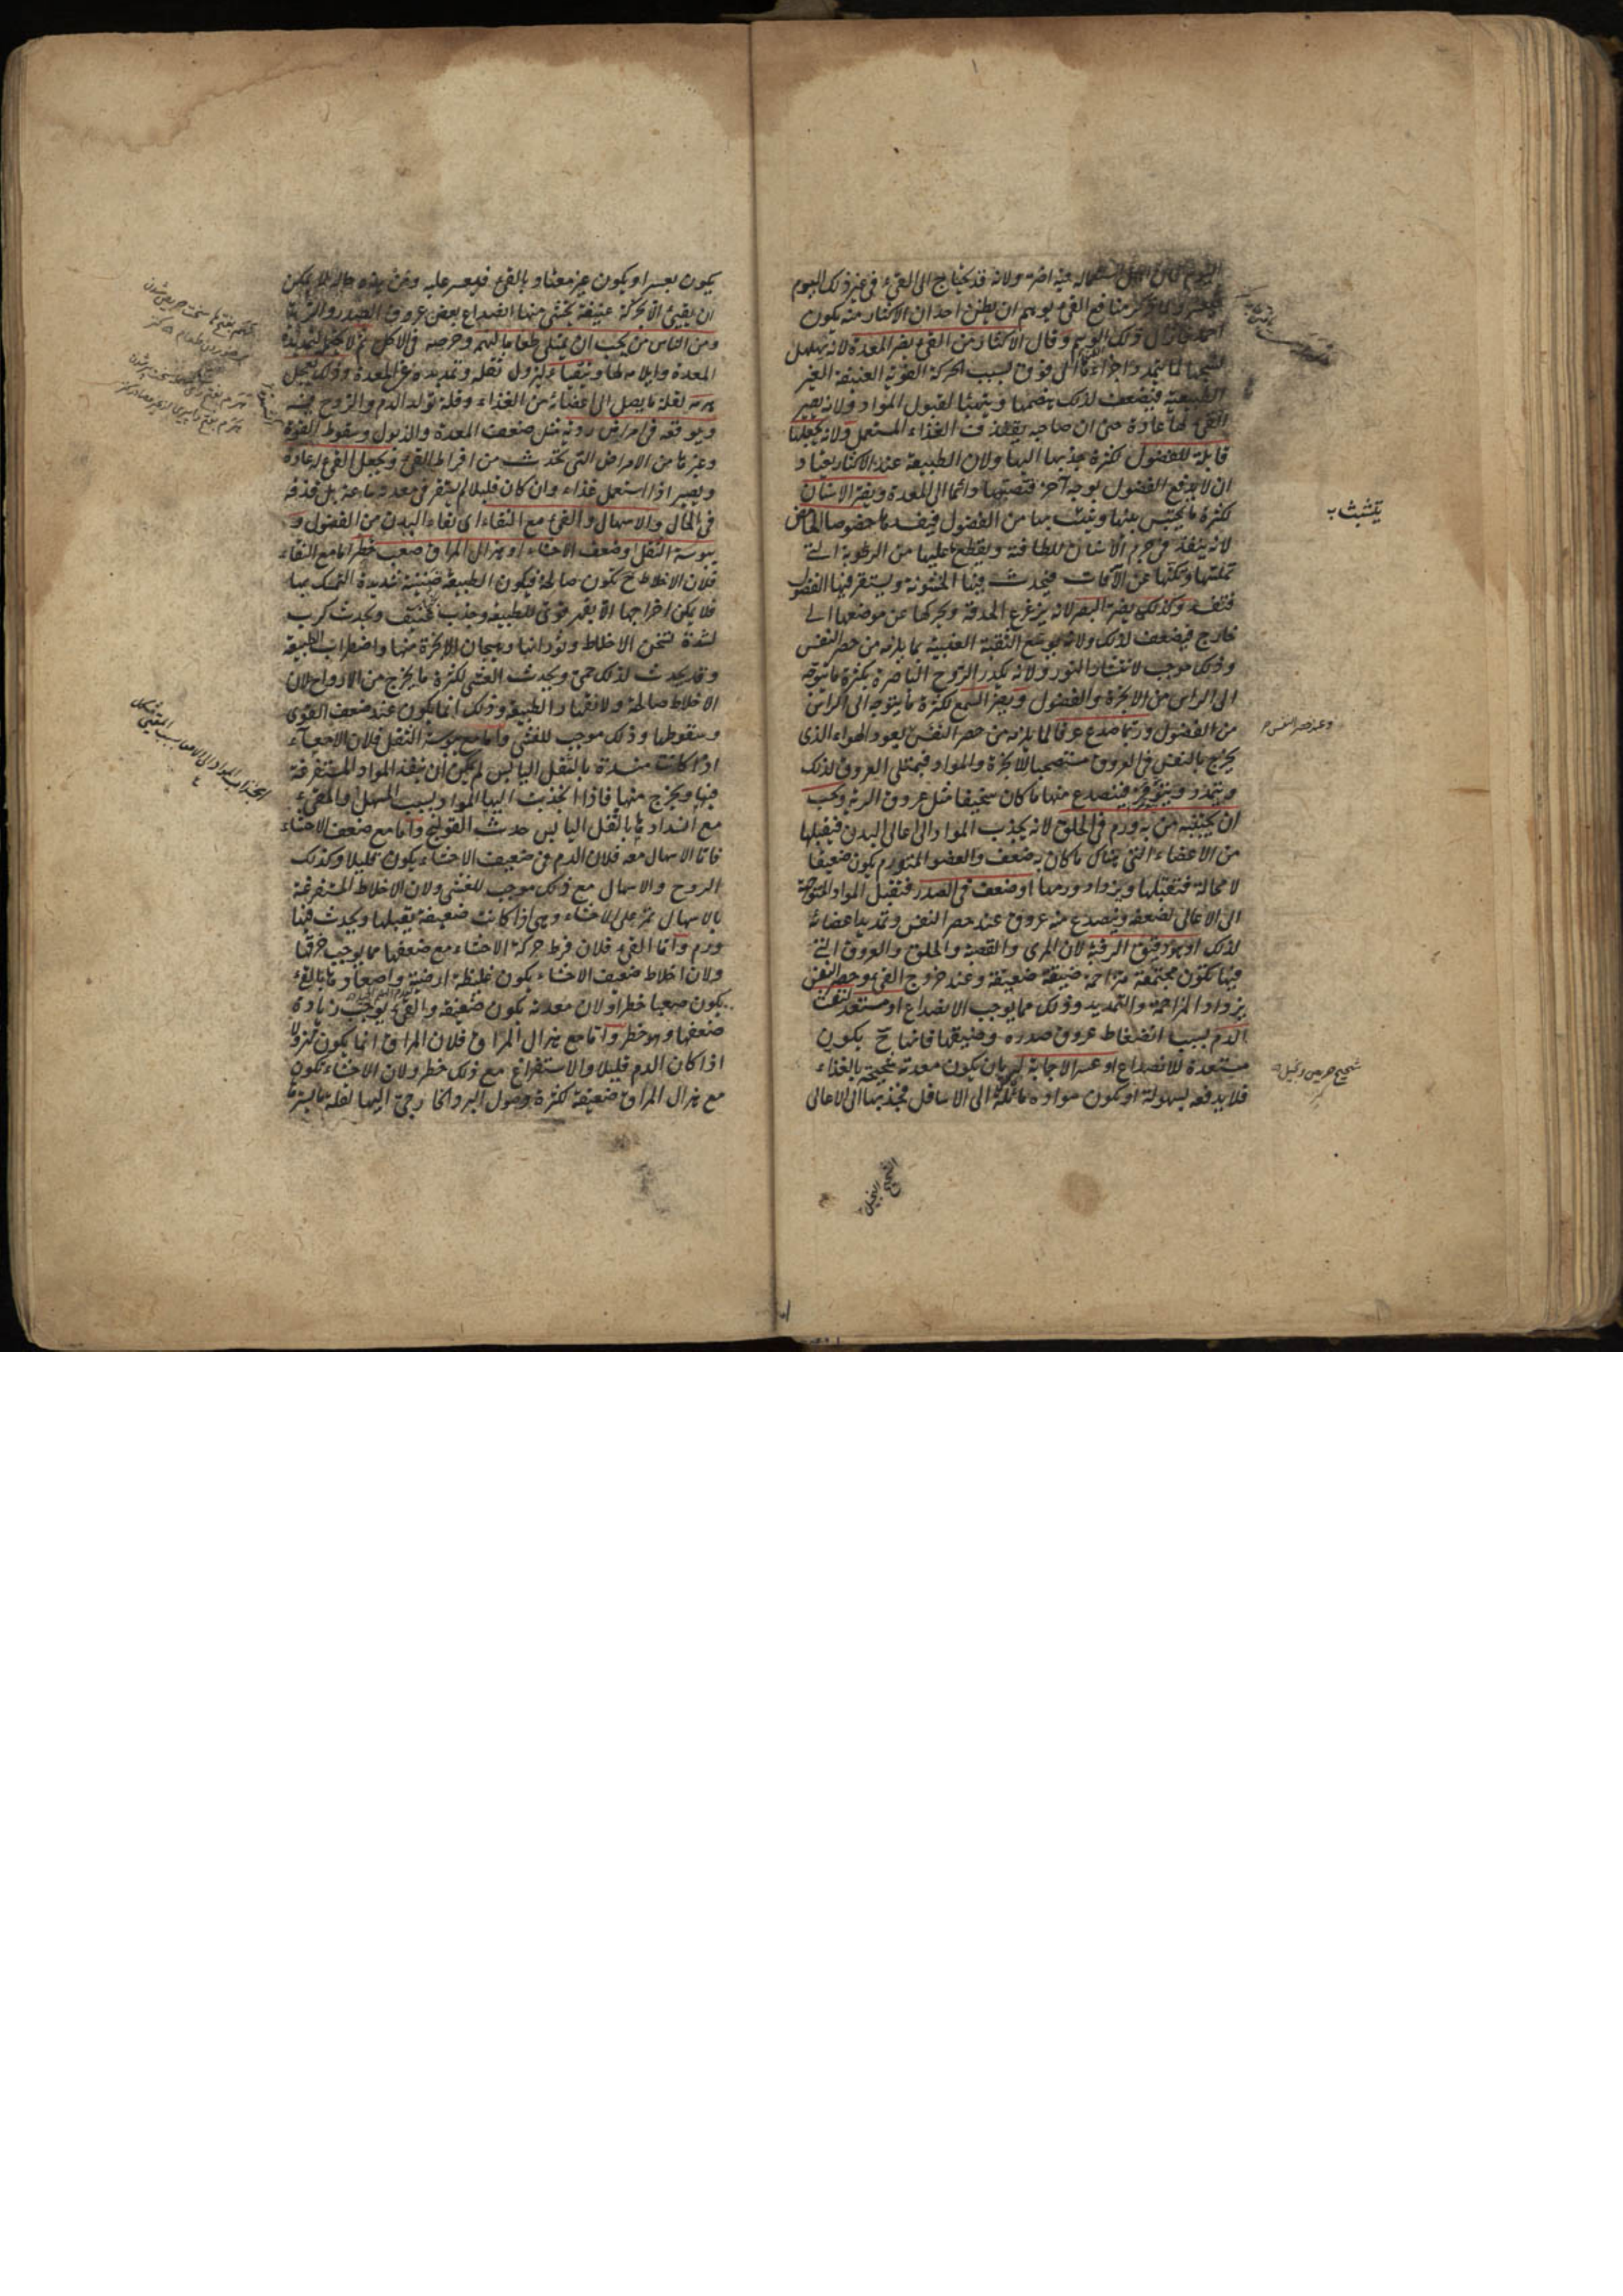 اليوم كان استعماله فيه اضر ولانه قد يحتاج الى القئ فى غير ذلك اليوم
منافع القئ يوهم ان يظن احد ان الاكثار منه يكون
احمد فازال ذلك الوهم وقال الاكثار من القئ يضر المعدة لانه يهلهل
نسجها لما يتمدد اجزاؤها الى فوق بسبب الحركة القوية العنيفة الغير
الطبيعية فيضعف لذلك هضمها ويتهيأ لقبول المواد ولانه يصير
القئ لها عادة حتى ان صاحبه يقذف الغذاء المستعمل ولانه يجعلها
قابلة للفضول لكثرة جذبها اليها ولان الطبيعة عند الاكثار يعتاد
ان لا يدفع الفضول بوجه آخر فتصبها دائما الى المعدة ويضر الاسنان
لكثرة ما يحتبس بينها ويتشبث بها من الفضول فيفسدها خصوصا الحامض
لانه ينفذ فى جرم الاسنان للطافته ويقطع عليها من الرطوبة التى
تملسها وتكنها عن الآفات فيحدث فيها الخشونة ويستقر فيها الفضول
فتفسد وكذلك يضر البصر لانه يزعزع الحدقة ويحركها عن موضعها الى
خارج فيضعف لذلك ولانه يوسع الثقبة العنبية بما يلزمه من حصر النفس
وذلك موجب لانتشار النور ولانه يكدر الروح الباصرة بكثرة ما يتوجه
الى الراس من الابخرة والفضول ويضر السمع لكثرة ما يتوجه الى الراس
من الفضول وربما صدع عرقا لما يلزمه من حصر النفس يعود الهواء الذى
يخرج بالتنفس فى العروق مستصحبا للابخرة والمواد فيمتلئ العروق لذلك
ويتمدد ويتوتر فينصدع منها ما كان سخيفا مثل عروق الرية ويجب
ان يجتنبه من به ورم فى الحلق لانه يجذب المواد الى اعالى البدن فيقبلها
من الاعضاء التى هناك ما كان به ضعف والعضو المتورم يكون ضعيفا
لا محالة فتقبلها ويزداد ورمها او ضعف فى الصدر فتقبل المواد المتوجهة
الى الاعالى لضعفه وينصدع منه عروق عند حصر النفس وتمديد اعضائه
لذلك او هو دقيق الرقبة لان المرى والقصبة والحلق والعروق التى
فيها تكون مجتمعة متزاحمة ضيقة ضعيفة وعند خروج القئ وحصر النفس
يزداد المزاحمة والتمديد وذلك مما يوجب الانصداع او مستعد لنفث
الدم بسبب انضغاط عروق صدره وضيقها فانها ح يكون
مستعدة للانصداع او عسر الاجابة له بان يكون معدته شحيحة بالغذاء
فلا يدفعه بسهولة او يكون مواده مائلة الى الاسافل فجذبها الى الاعالى
يتشبث به
وعند حصر النفس
شحيح حريص وبخيل
الشحيح البخيل
يكون بعسر او يكون غير معتاد بالقئ فيعسر عليه ومن هذه حاله لا يمكن
ان يقيئ الا بحركة عنيفة يخشى منها انصداع بعض عروق الصدر والرية
ومن الناس من يحب ان يمتلئ طعاما لنهمه وحرصه فى الاكل ثم لا يحتمل تمديده
المعدة وايلامه لها ويتقيأ ليزول ثقله وتمديده عن المعدة وذلك يعجل
هرمه لقلة ما يصل الى اعضائه من الغذاء وقلة تولد الدم والروح فيه
ويوقعه فى امراض ردية مثل ضعف المعدة والذبول وسقوط القوة
وغيرها من الامراض التى تحدث من افراط القئ ويجعل القئ له عادة
ويصير اذا استعمل غذاء وان كان قليلا لم يستقر فى معدته ساعة بل قذفه
فى الحال والاسهال والقئ مع النقاء اى نقاء البدن من الفضول و
يبوسة الثفل او ضعف الاحشاء او هزال المراق صعب خطر اما مع النقاء
فلان الاخلاط ح تكون صالحة فيكون الطبيعة ضنينة شديدة التمسك بها
فلا يمكن اخراجها الا بقهر قوى للطبيعة وجذب عنيف ويحدث كرب
لشدة تسخن الاخلاط وثورانها وهيجان الابخرة منها واضطراب الطبيعة
وقد يحدث لذلك حمى ويحدث الغشى لكثرة ما يخرج من الارواح لان
الاخلاط صالحة ولانقهار الطبيعة وذلك انما يكون عند ضعف القوى
وسقوطها وذلك موجب للغشى واما مع يبوسة الثفل فلان الامعاء
اذا كانت منسدة بالثفل اليابس لم يمكن ان ينفذ المواد المستفرغة
فيها ويخرج منها فاذا انجذبت اليها المواد بسبب المسهل او المقيئ
مع انسدادها بالثفل اليابس حدث القولنج واما مع ضعف الاحشاء
فاما الاسهال معه فلان الدم فى ضعيف الاحشاء يكون قليلا وكذلك
الروح والاسهال مع ذلك موجب للغشى ولان الاخلاط المستفرغة
بالاسهال تمر على الاحشاء وهى اذا كانت ضعيفة يقبلها ويحدث فيها
ورم واما القئ فلان فرط حركة الاحشاء مع ضعفها مما يوجب خرقها
ولان اخلاط ضعيف الاحشاء يكون غليظة ارضية واصعادها بالقئ
يكون صعبا خطرا ولان معدته تكون ضعيفة والقئ يوجب زيادة
ضعفها وهو خطر واما مع هزال المراق فلان المراق انما يكون مهزولا
اذا كان الدم قليلا والاستفراغ مع ذلك خطر ولان الاحشاء تكون
مع هزال المراق ضعيفة لكثرة وصول البرد الخارجى اليها لقلة ما يسترها
انجذاب المواد الى الامعاء بسبب المقيئ مشكل